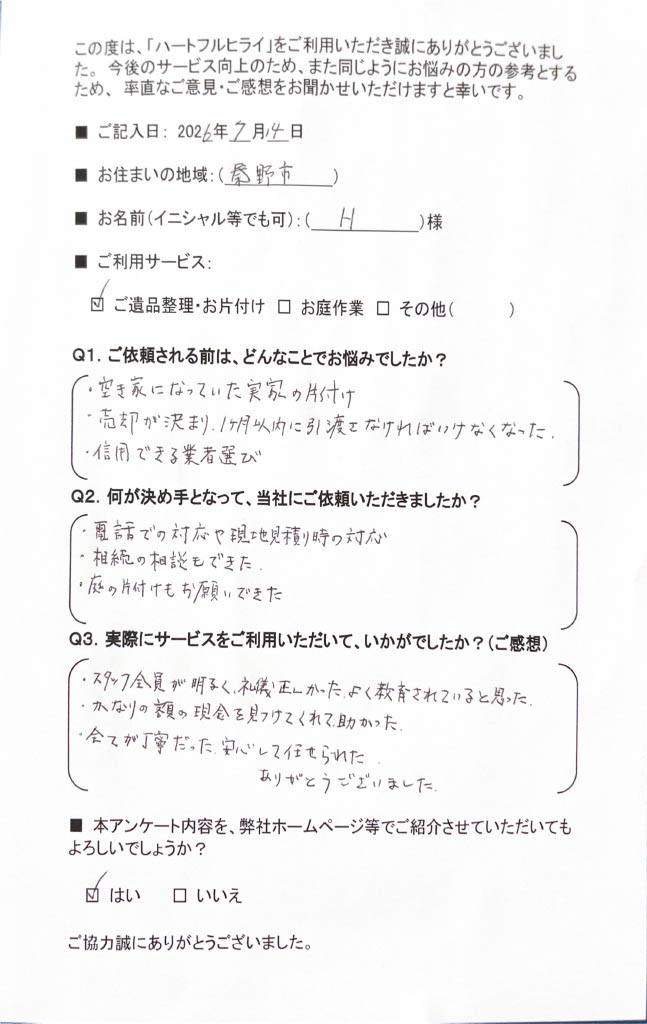 この度は、「ハートフルヒライ」をご利用いただき誠にありがとうございまし
た。今後のサービス向上のため、また同じようにお悩みの方の参考とする
ため、率直なご意見・ご感想をお聞かせいただけますと幸いです。
■ ご記入日： 2026年7月14日
■ お住まいの地域：（秦野市）
■ お名前（イニシャル等でも可）：（H）様
■ ご利用サービス：
☑ ご遺品整理・お片付け □ お庭作業 □ その他（　　）
Q1. ご依頼される前は、どんなことでお悩みでしたか？
・空き家になっていた実家の片付け
・売却が決まり、1ヶ月以内に引渡をなければいけなくなった。
・信用できる業者選び
Q2. 何が決め手となって、当社にご依頼いただきましたか？
・電話での対応や現地見積り時の対応
・相続の相談もできた。
・庭の片付けもお願いできた
Q3. 実際にサービスをご利用いただいて、いかがでしたか？（ご感想）
・スタッフ全員が明るく、礼儀正しかった。よく教育されていると思った。
・かなりの額の現金を見つけてくれて、助かった。
・全てが丁寧だった。安心して任せられた。
ありがとうございました。
■ 本アンケート内容を、弊社ホームページ等でご紹介させていただいても
よろしいでしょうか？
☑ はい □ いいえ
ご協力誠にありがとうございました。